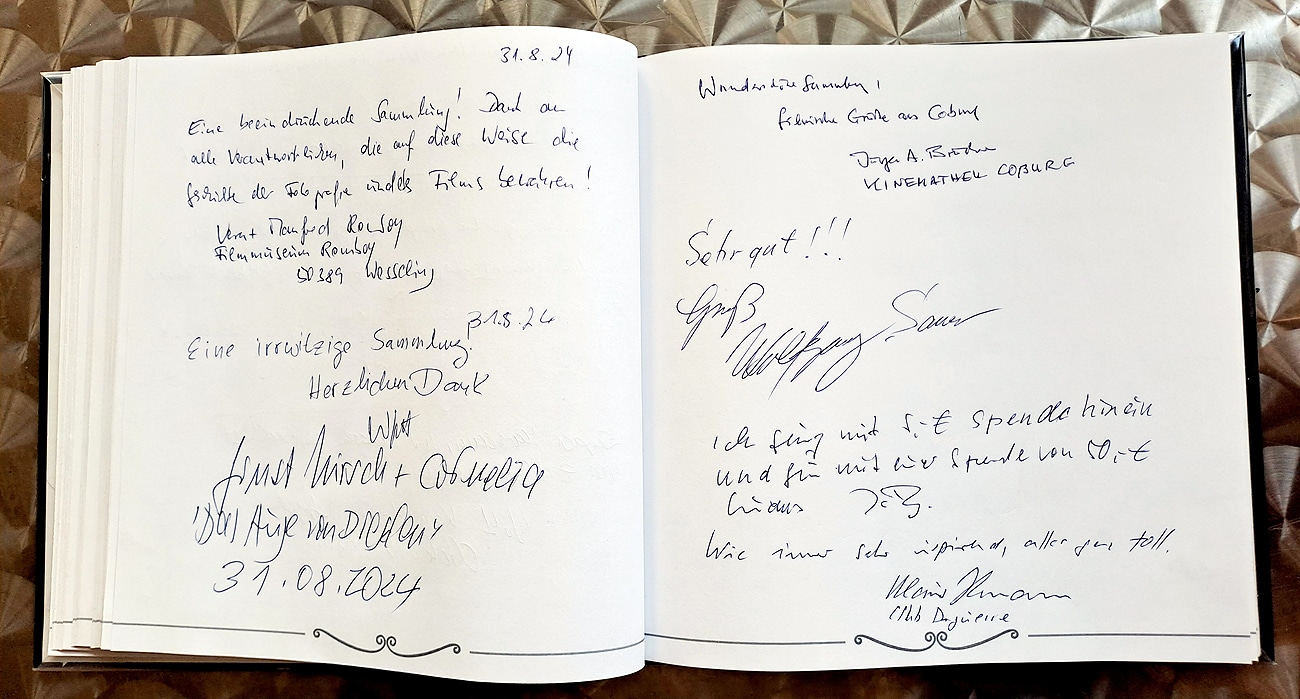 31.8.24
Eine beeindruckende Sammlung! Dank an
alle Verantwortlichen, die auf diese Weise die
Geschichte der Fotografie und des Films bewahren!
Manfred Romboy
Filmmuseum Romboy
50389 Wesseling
31.8.24
Eine irrwitzige Sammlung.
Herzlichen Dank
Ernst Hirsch + Cornelia
"Das Auge von Dresden"
31.08.2024
Wunderschöne Sammlung!
filmische Grüße aus Coburg
KINEMATHEK COBURG
Sehr gut!!!
Gruß
Wolfgang Sauer
Ich ging mit 5,-€ Spende hinein
und ging mit einer Spende von 50,-€
hinaus
Wie immer sehr inspirierend, alles ganz toll.
Club Daguerre